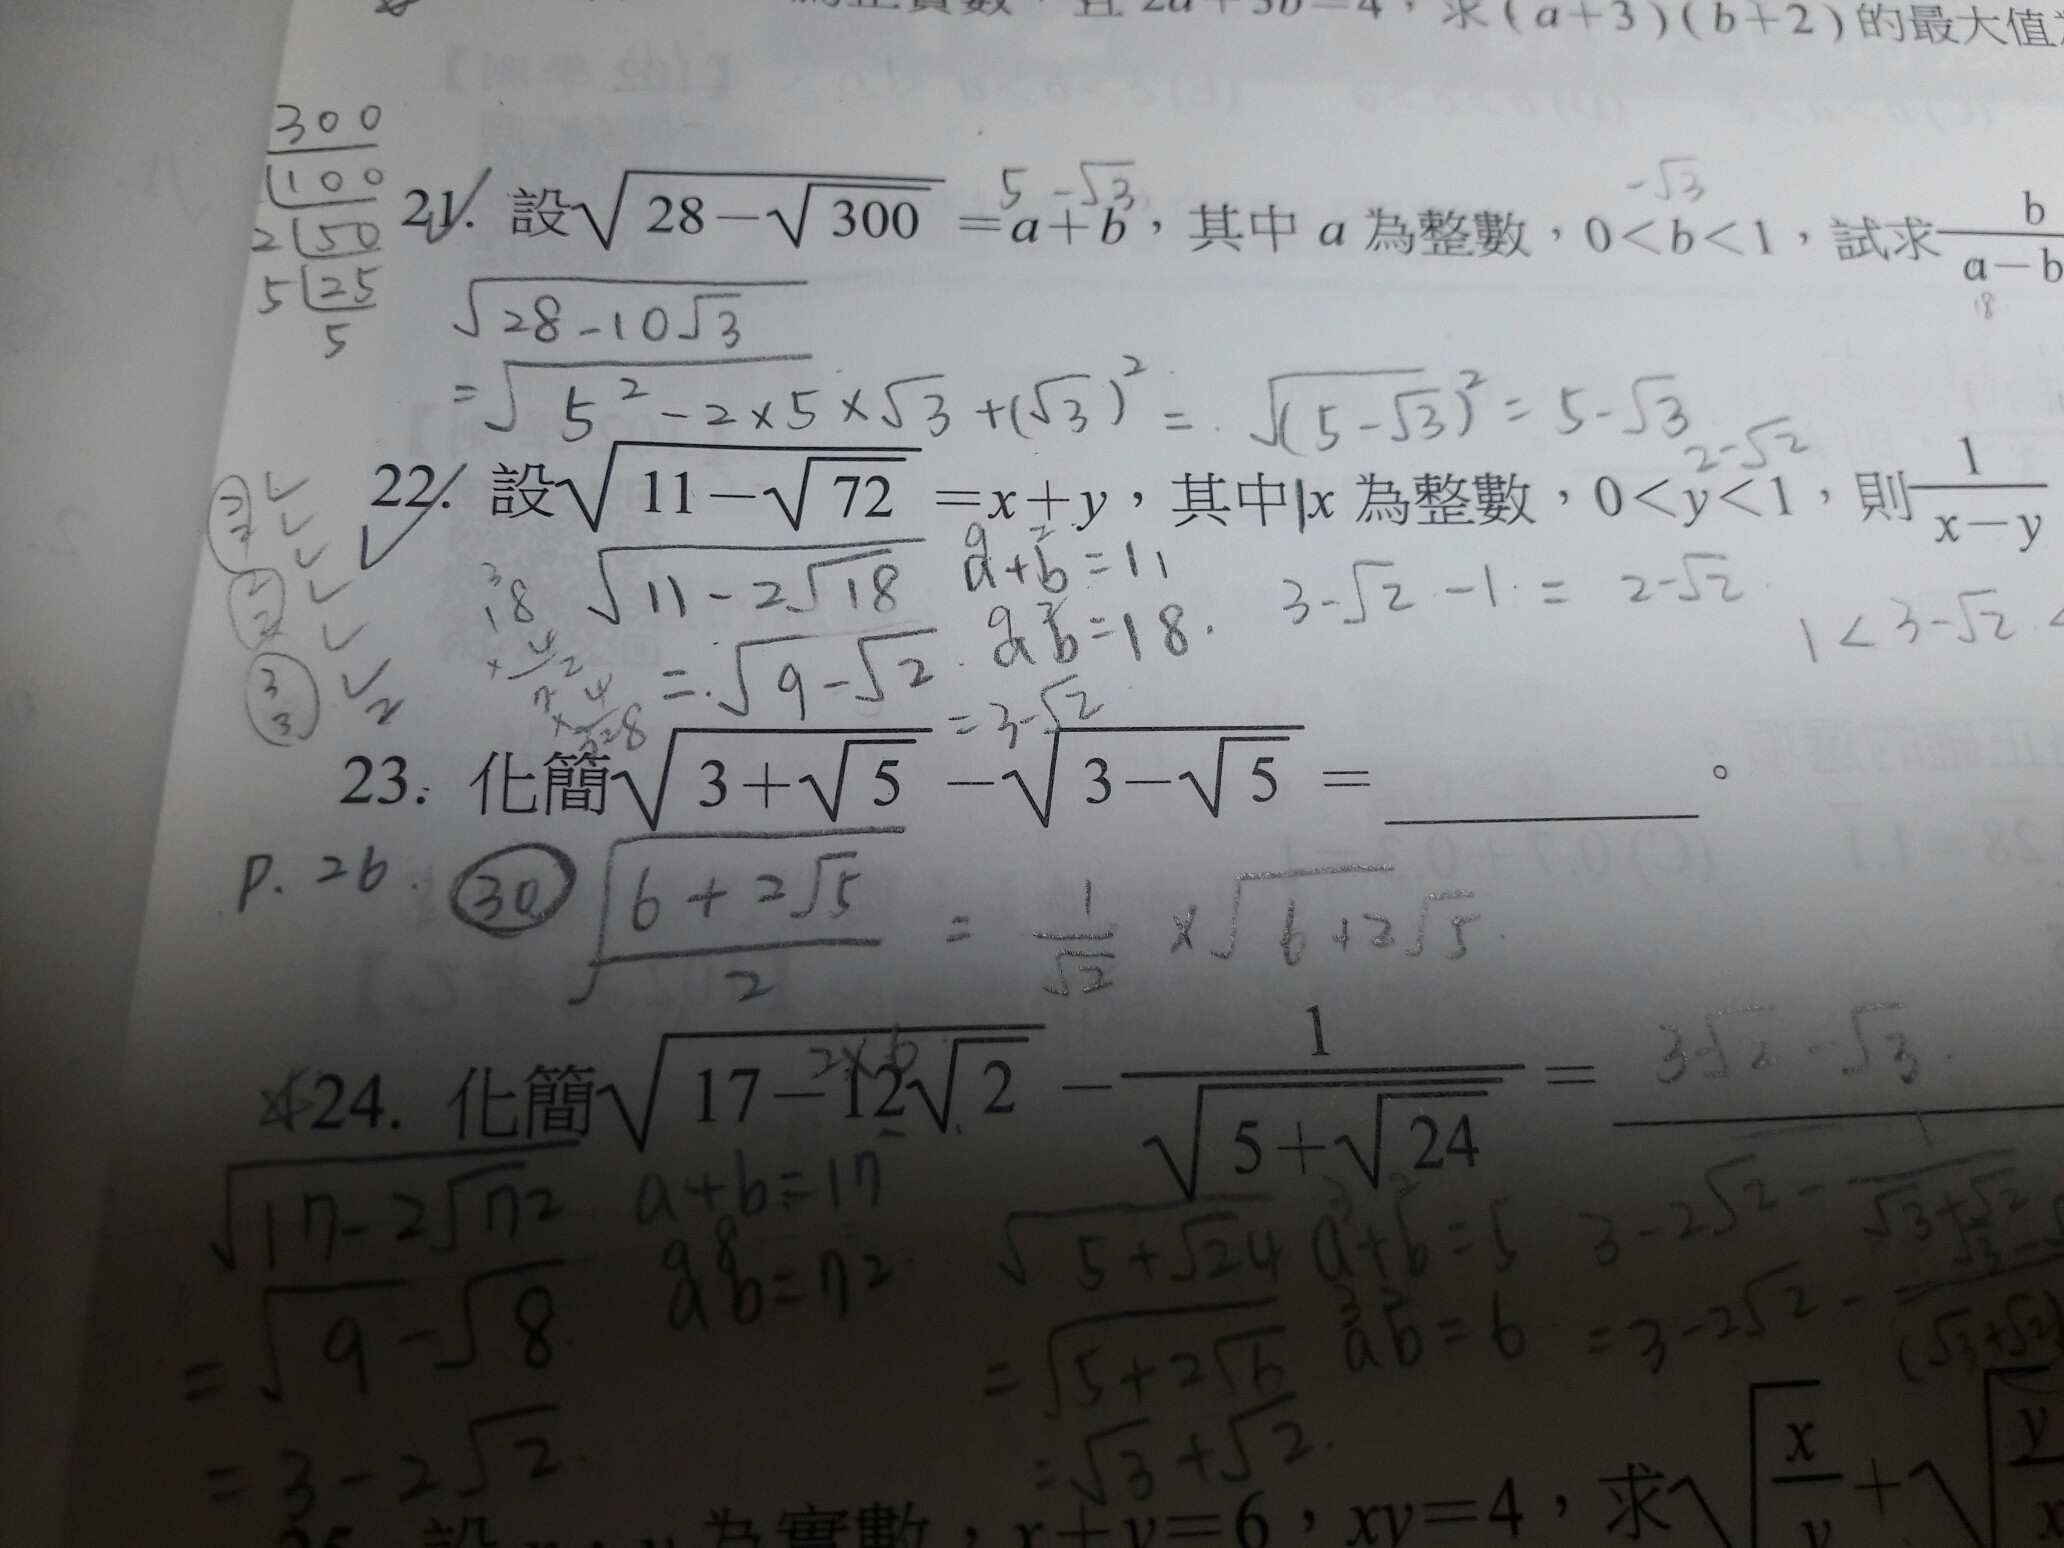 為正實數，且 2a+3b=4，求(a+3)(b+2)的最大值
300
100
2 50
5 25
5
5 -√3
-√3
21. 設√(28-√300) =a+b，其中 a 為整數，0<b<1，試求 b/(a-b)
18
√(28-10√3)
=√(5²-2×5×√3+(√3)²) = √((5-√3)²) = 5-√3
2-√2
22. 設√(11-√72) =x+y，其中x 為整數，0<y<1，則 1/(x-y)
√(11-2√18) a+b=11 3-√2-1 = 2-√2
9 2
1<3-√2<
18
=√9-√2 ab=18.
9 2
=3-√2
2
2
2
2
3
3
23. 化簡√(3+√5) -√(3-√5) = 。
P. 26 30 √((6+2√5)/2) = 1/√2 ×√(6+2√5)
2×6
24. 化簡√(17-12√2) - 1/√(5+√24) = 3√2-√3
√(17-2√72) a+b=17
9 8
ab=72
=√9-√8
=3-2√2
√(5+√24) a+b=5
3 2
=√(5+2√6) ab=6
3 2
=√3+√2.
3-2√2- 1/(√3+√2)
=3-2√2-
(√3+√2)
25. 設 x，y 為實數，x+y=6，xy=4，求√(x/y)+√(y/x)